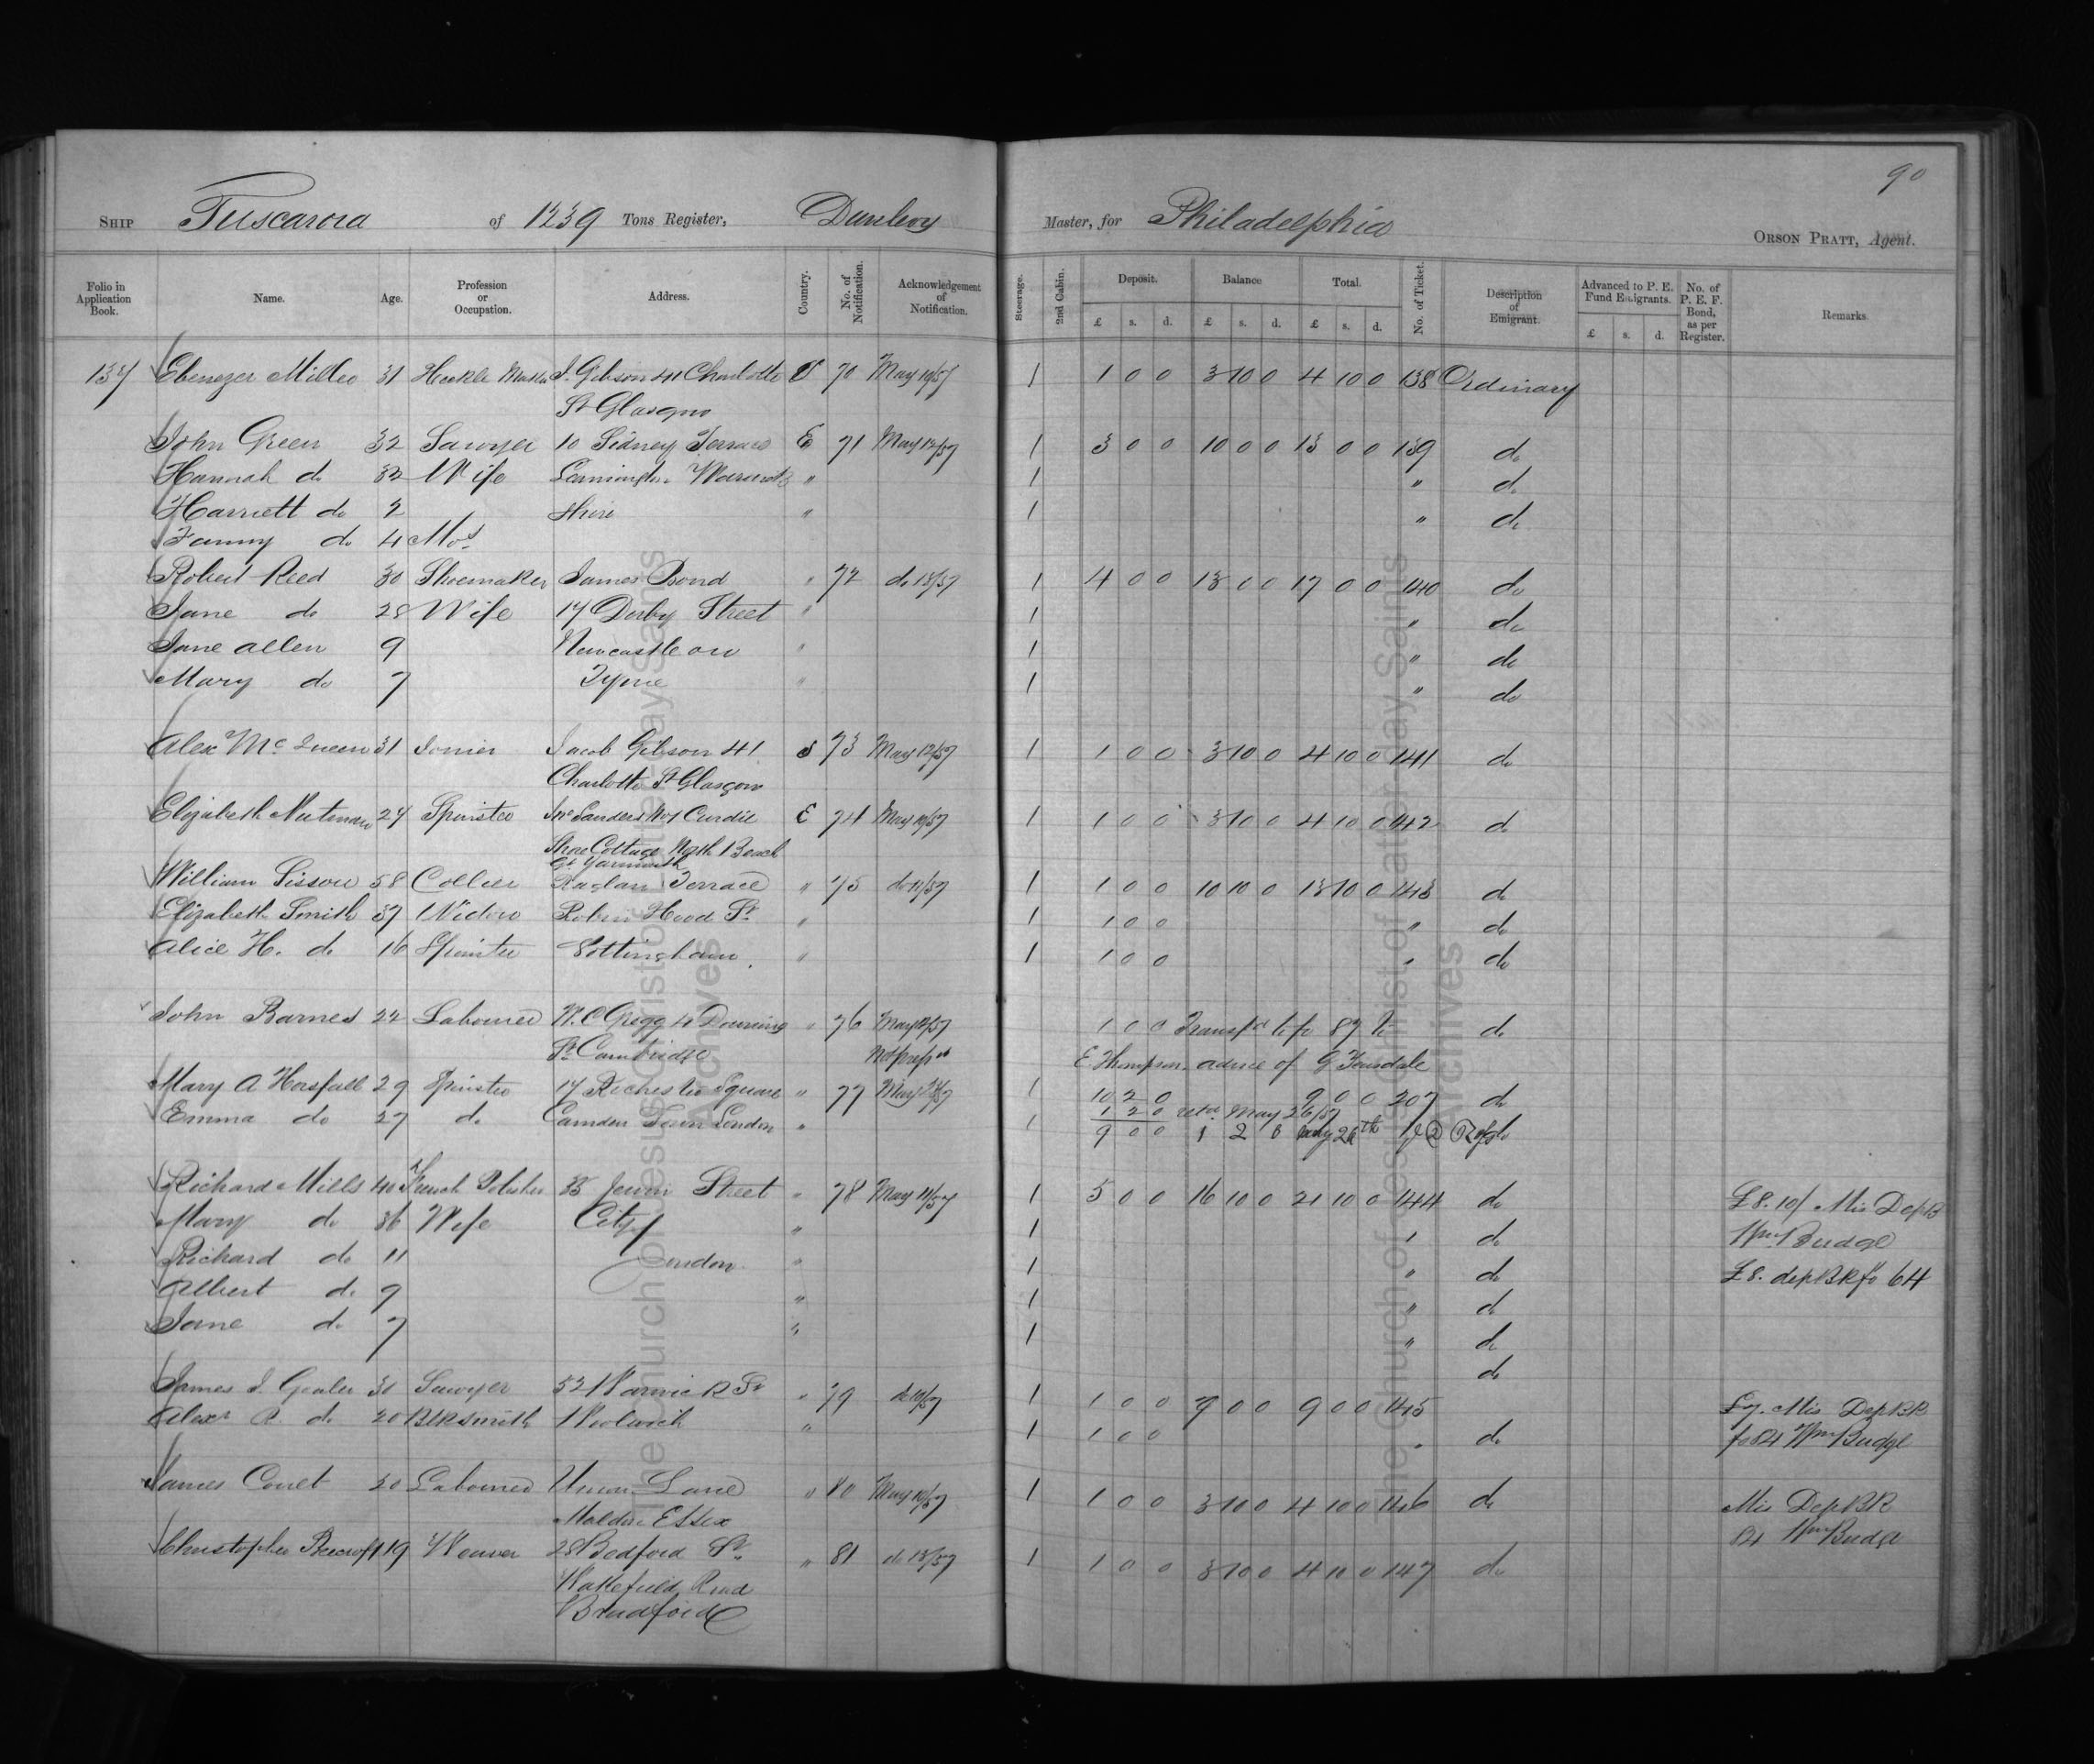 90
SHIP Tuscarora of 1239 Tons Register, Dunlevy Master, for Philadelphia
ORSON PRATT, Agent.
Folio in Application Book. Name. Age. Profession or Occupation. Address. Country. No. of Notification. Acknowledgement of Notification. Steerage. 2nd Cabin. Deposit. Balance Total. No. of Ticket. Description of Emigrant. Advanced to P. E. Fund Emigrants. No. of P. E. F. Bond, as per Register. Remarks
£ s. d. £ s. d. £ s. d. £ s. d.
137 Ebenezer Miller 31 Heckle Maker J. Gibson 41 Charlotte S 70 May 19/57 1 1 0 0 3 10 0 4 10 0 138 Ordinary
St Glasgow
John Green 32 Sawyer 10 Sidney Terrace E 71 May 12/57 1 3 0 0 10 0 0 13 0 0 139 do
Hannah do 32 Wife Leamington Warwick " 1 " do
Harriett do 2 shire " 1 " do
Fanny do 4 Mos
Robert Reed 30 Shoemaker James Bond " 72 do 13/57 1 4 0 0 13 0 0 17 0 0 140 do
Jane do 28 Wife 17 Derby Street " 1 " do
Jane Allen 9 Newcastle on " 1 " do
Mary do 7 Tyne " 1 " do
Alex McQueen 31 Joiner Jacob Gibson 41 S 73 May 12/57 1 1 0 0 3 10 0 4 10 0 141 do
Charlotte St Glasgow
Elizabeth 24 Spinster E 74 May 19/57 1 1 0 0 3 10 0 4 10 0 142 do
Shore Cottage North Beach
Gt Yarmouth
William Sisson 58 Collier Raglan Terrace " 75 do 11/57 1 1 0 0 10 10 0 13 10 0 143 do
Elizabeth Smith 37 Widow Robin Hood St. " 1 1 0 0 " do
Alice H. do 16 Spinster Nottingham. " 1 1 0 0 " do
John Barnes 22 Labourer W. C Gregg 4 Downing " 76 May 12/57 1 0 0 Transfd to fo 87 do
St. Cambridge Not prepd E Thompson advice of G Teasdale
Mary A Horsfall 29 Spinster 17 Rochester Square " 77 May 1 10 2 0 9 0 0 207 do
Emma do 27 do Camden Town London " 1 1 2 0 retd. May 26/57
9 0 0 1 2 0 May 26th
Richard Mills 40 French Polisher 35 Jewin Street " 78 May 11/57 1 5 0 0 16 10 0 21 10 0 144 do £8. 10/ Mis Dep B
Mary do 36 Wife City " 1 " do Wm Budge
Richard do 11 London " 1 " do £8. dep BR fo 64
Albert do 9 " 1 " do
Jane do 7 " 1 " do
do
James J. 30 Sawyer 52 Warwick St " 79 do 19/57 1 1 0 0 7 0 0 9 0 0 145 £7. Mis Dep BR
Alexr R. do 20 Blksmith Woolwich " 1 1 0 0 " do fo 84 Wm Budge
James 20 Labourer Union Lane " 80 May 19/57 1 1 0 0 3 10 0 4 10 0 146 do Mis Dep BR
Maldon Essex 84 Wm Budge
Christopher Beecroft 19 Weaver 28 Bedford St. " 81 do 13/57 1 1 0 0 3 10 0 4 10 0 147 do
Wakefield Road
Bradford
The Church of Jesus Christ of Latter-day Saints
Archives
The Church of Jesus Christ of Latter-day Saints
Archives